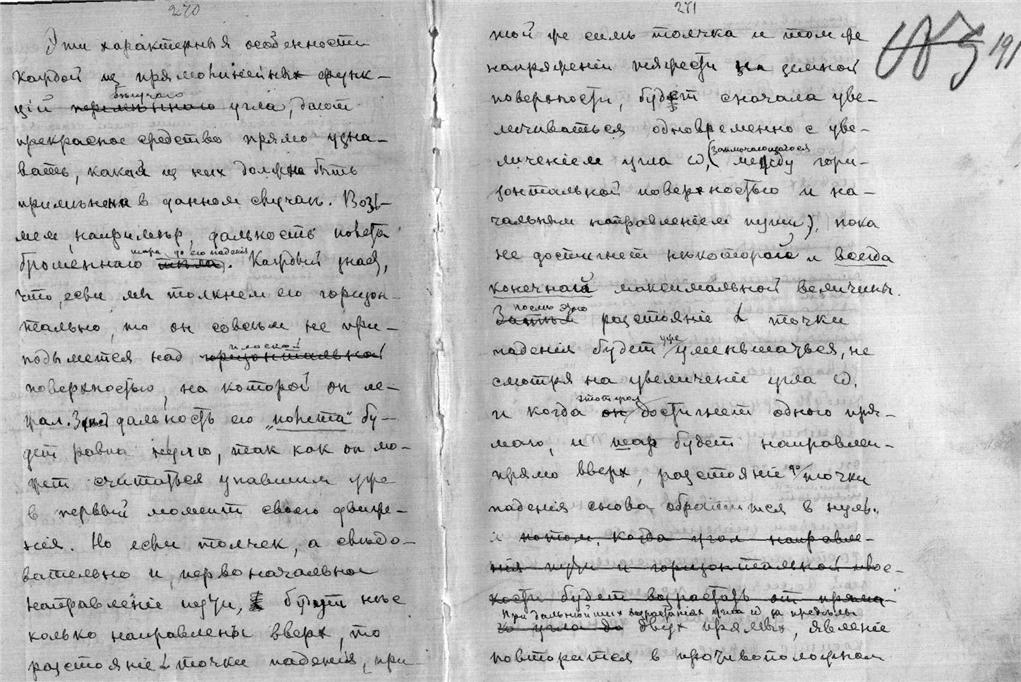 270
Эти характерныя особенности
каждой из прямолинейных функ-
цій
бегущаго
переменнаго угла, дают
прекрасное средство прямо узна-
вать, какая из них должна быть
применена в данном случае. Возь-
мем например, дальность полета
шара до его паденія
брошеннаго тела. Каждый знает,
что, если мы толкнем его горизон-
тально, то он совсем не при-
подымется над
плоской
горизонтальной
поверхностью, на которой он ле-
жал. Значит дальность его "полета" бу-
дет равна нулю, так как он мо-
жет считаться упавшим уже
в первый момент своего движе-
ния. Но если толчек, а следо-
вательно и первоначальное
направленіе пути, будут нес
колько направлены вверх, то
разстояніе точки паденія, при
271
той же силе толчка и том же
напряженіи тяжести на земной
поверхности, будет сначала уве-
личиваться одновременно с уве-
заключающагося
личеніем угла ω, (между гори-
зонтальной поверхностью и на-
чальным направленіем пути), пока
не достигнет некоторой и всегда
конечной максимальной величины.
после этого
Затем разстояніе точки
уже
паденія будет уменьшаться, не
смотря на увеличеніе угла ω,
этот угол
и когда он достигнет одного пря-
маго, и шар будет направлен
прямо вверх, разстояніе до точки
паденія снова обратится в нуль.
потом, когда угол направле-
нія пути и горизонтальной плос-
кости будет возрастать от прямаго
При дальнейших возрастаніях угла ω за пределы
до угла до двух прямых, явленіе
повторится в противоположном
191